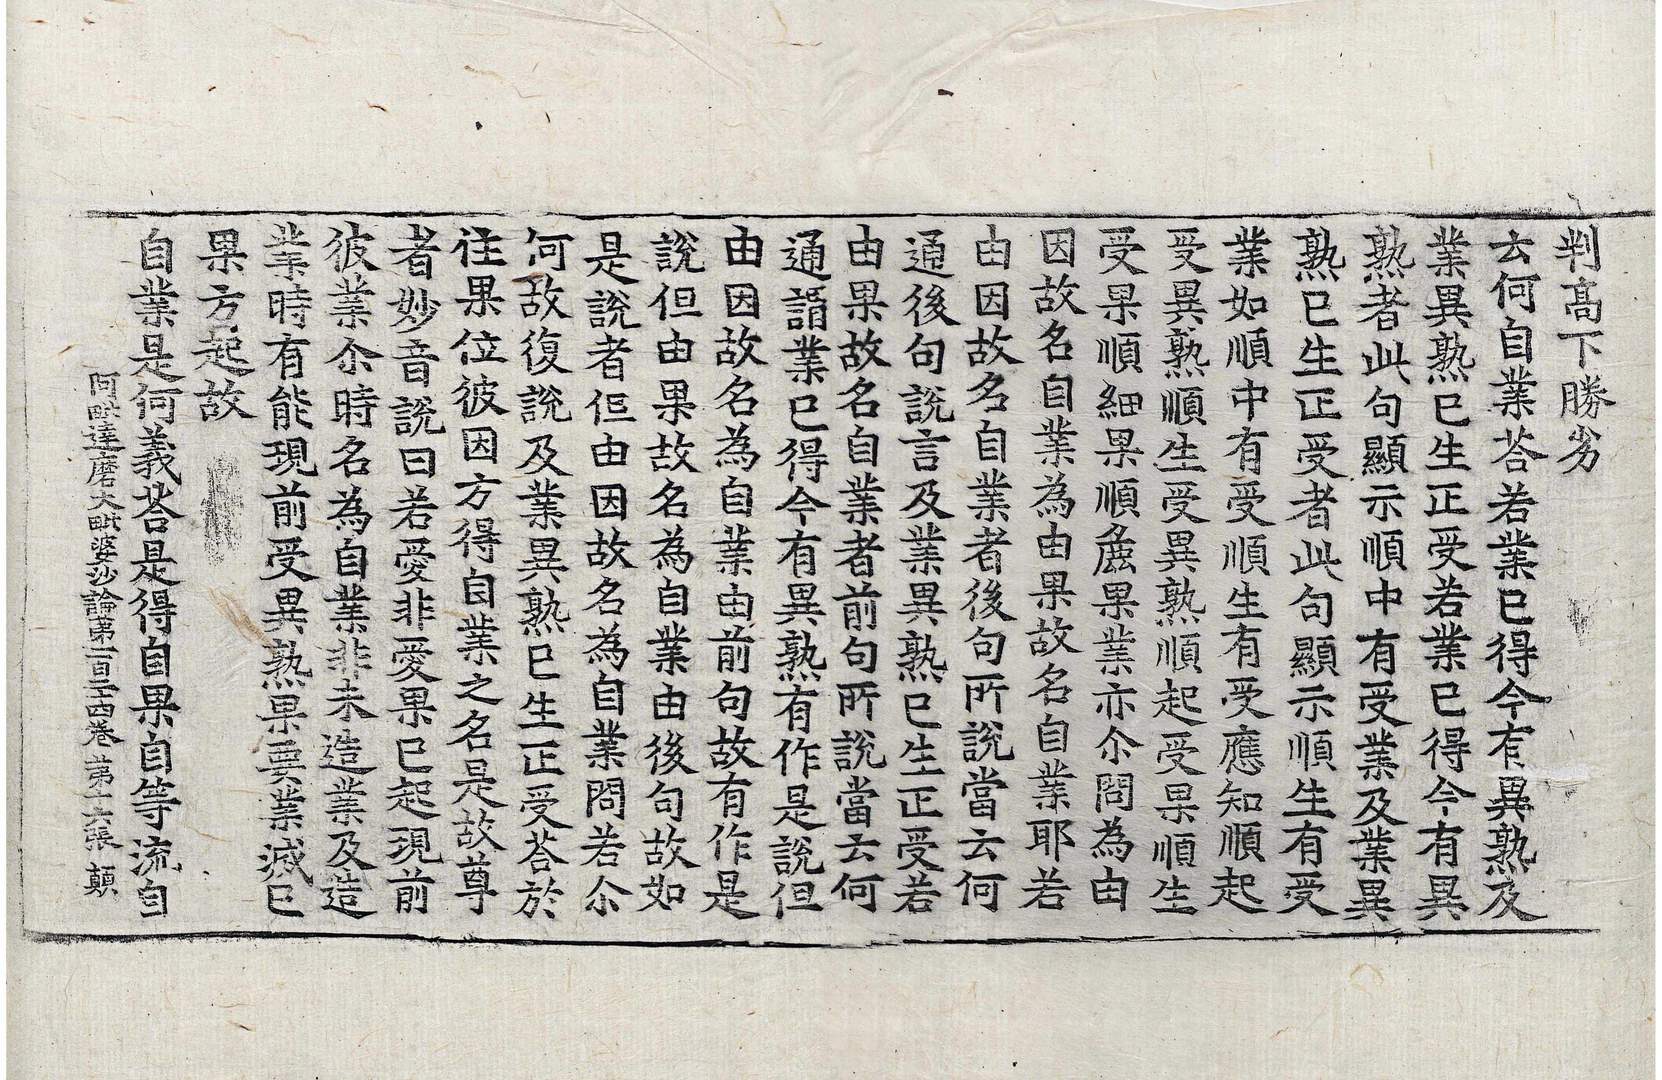 判髙下勝劣
云何自業荅若業已得今有異熟及
業異熟已生正受若業已得今有異
熟者此句顯示順中有受業及業異
熟已生正受者此句顯示順生有受
業如順中有受順生有受應知順起
受異熟順生受異熟順起受果順生
受果順細果順麁果業亦尒問為由
因故名自業為由果故名自業耶若
由因故名自業者後句所說當云何
通後句說言及業異熟已生正受若
由果故名自業者前句所說當云何
通謂業已得今有異熟有作是說但
由因故名為自業由前句故有作是
說但由果故名為自業由後句故如
是說者但由因故名為自業問若尒
何故復說及業異熟已生正受荅於
住果位彼因方得自業之名是故尊
者妙音說曰若愛非愛果已起現前
彼業尒時名為自業非未造業及造
業時有能現前受異熟果要業滅已
果方起故
自業是何義荅是得自果自等流自
阿毗達磨大毗婆沙論第一百二十四卷 第十六張 顛